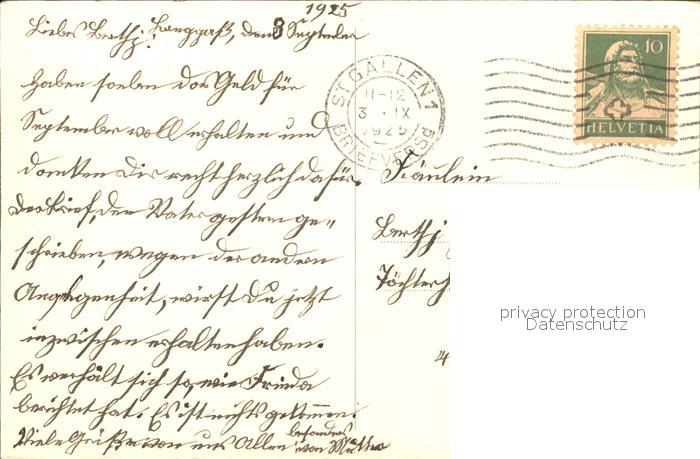 1925
Liebes Berthj! Langgaß, den 3 September
Haben soeben das Geld für
September voll erhalten und
danken Dir recht herzlich dafür.
Der Brief, den Vater gestern ge=
schrieben, wegen der andern
Angelegenheit, wirst Du jetzt
inzwischen erhalten haben.
Es verhält sich so, wie Frieda
berichtet hat. Es ist nichts gekommen.
Viele Grüße von uns Allen besonders
von Mutter
ST. GALLEN 1
11-12
3. IX
1925
BRIEFVERSD
10
HELVETIA
Fräulein
Berthj
Töchterh
privacy protection
Datenschutz